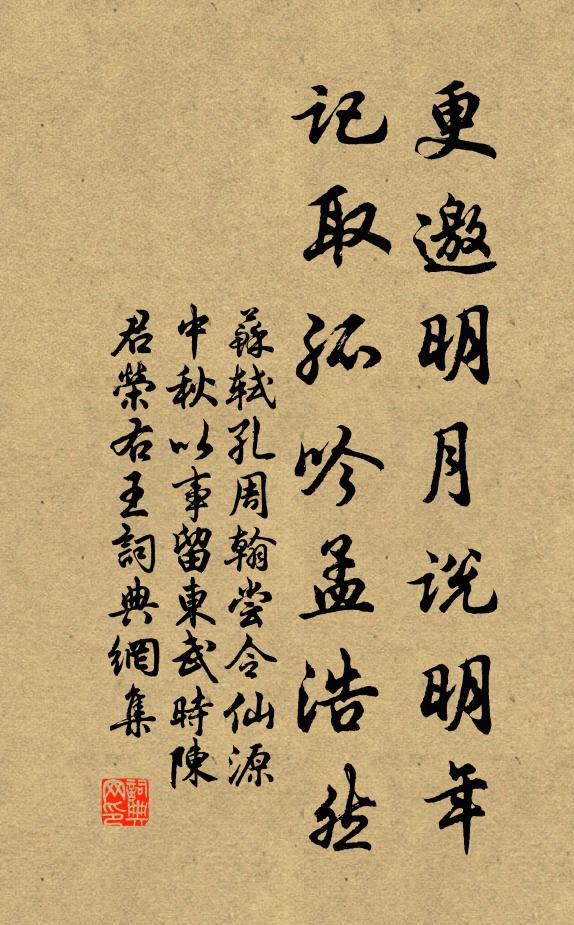 更邀明月說明年
記取孤吟孟浩然
蘇軾孔周翰嘗令仙源
中秋以事留東武時陳
君榮右王詞典網集
詞典網印